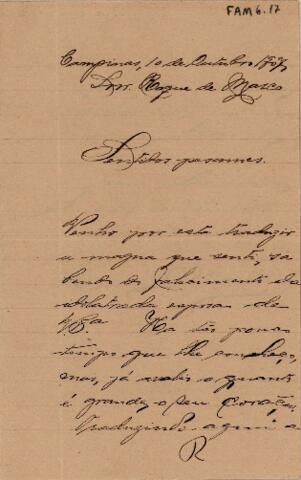 FAM6.17
Campinas, 10 de Outubro 1907
Snr. Roque de Marco
Sentidos pesames.
Venho por esta traduzir
a magua que senti, sa
bendo do falecimento da
idolatrada esposa de
V. Sa Ha tão pouco
tempo que lhe conheço,
mas, já avalio o quanto
é grande, o seu coração,
traduzindo aqui a
R